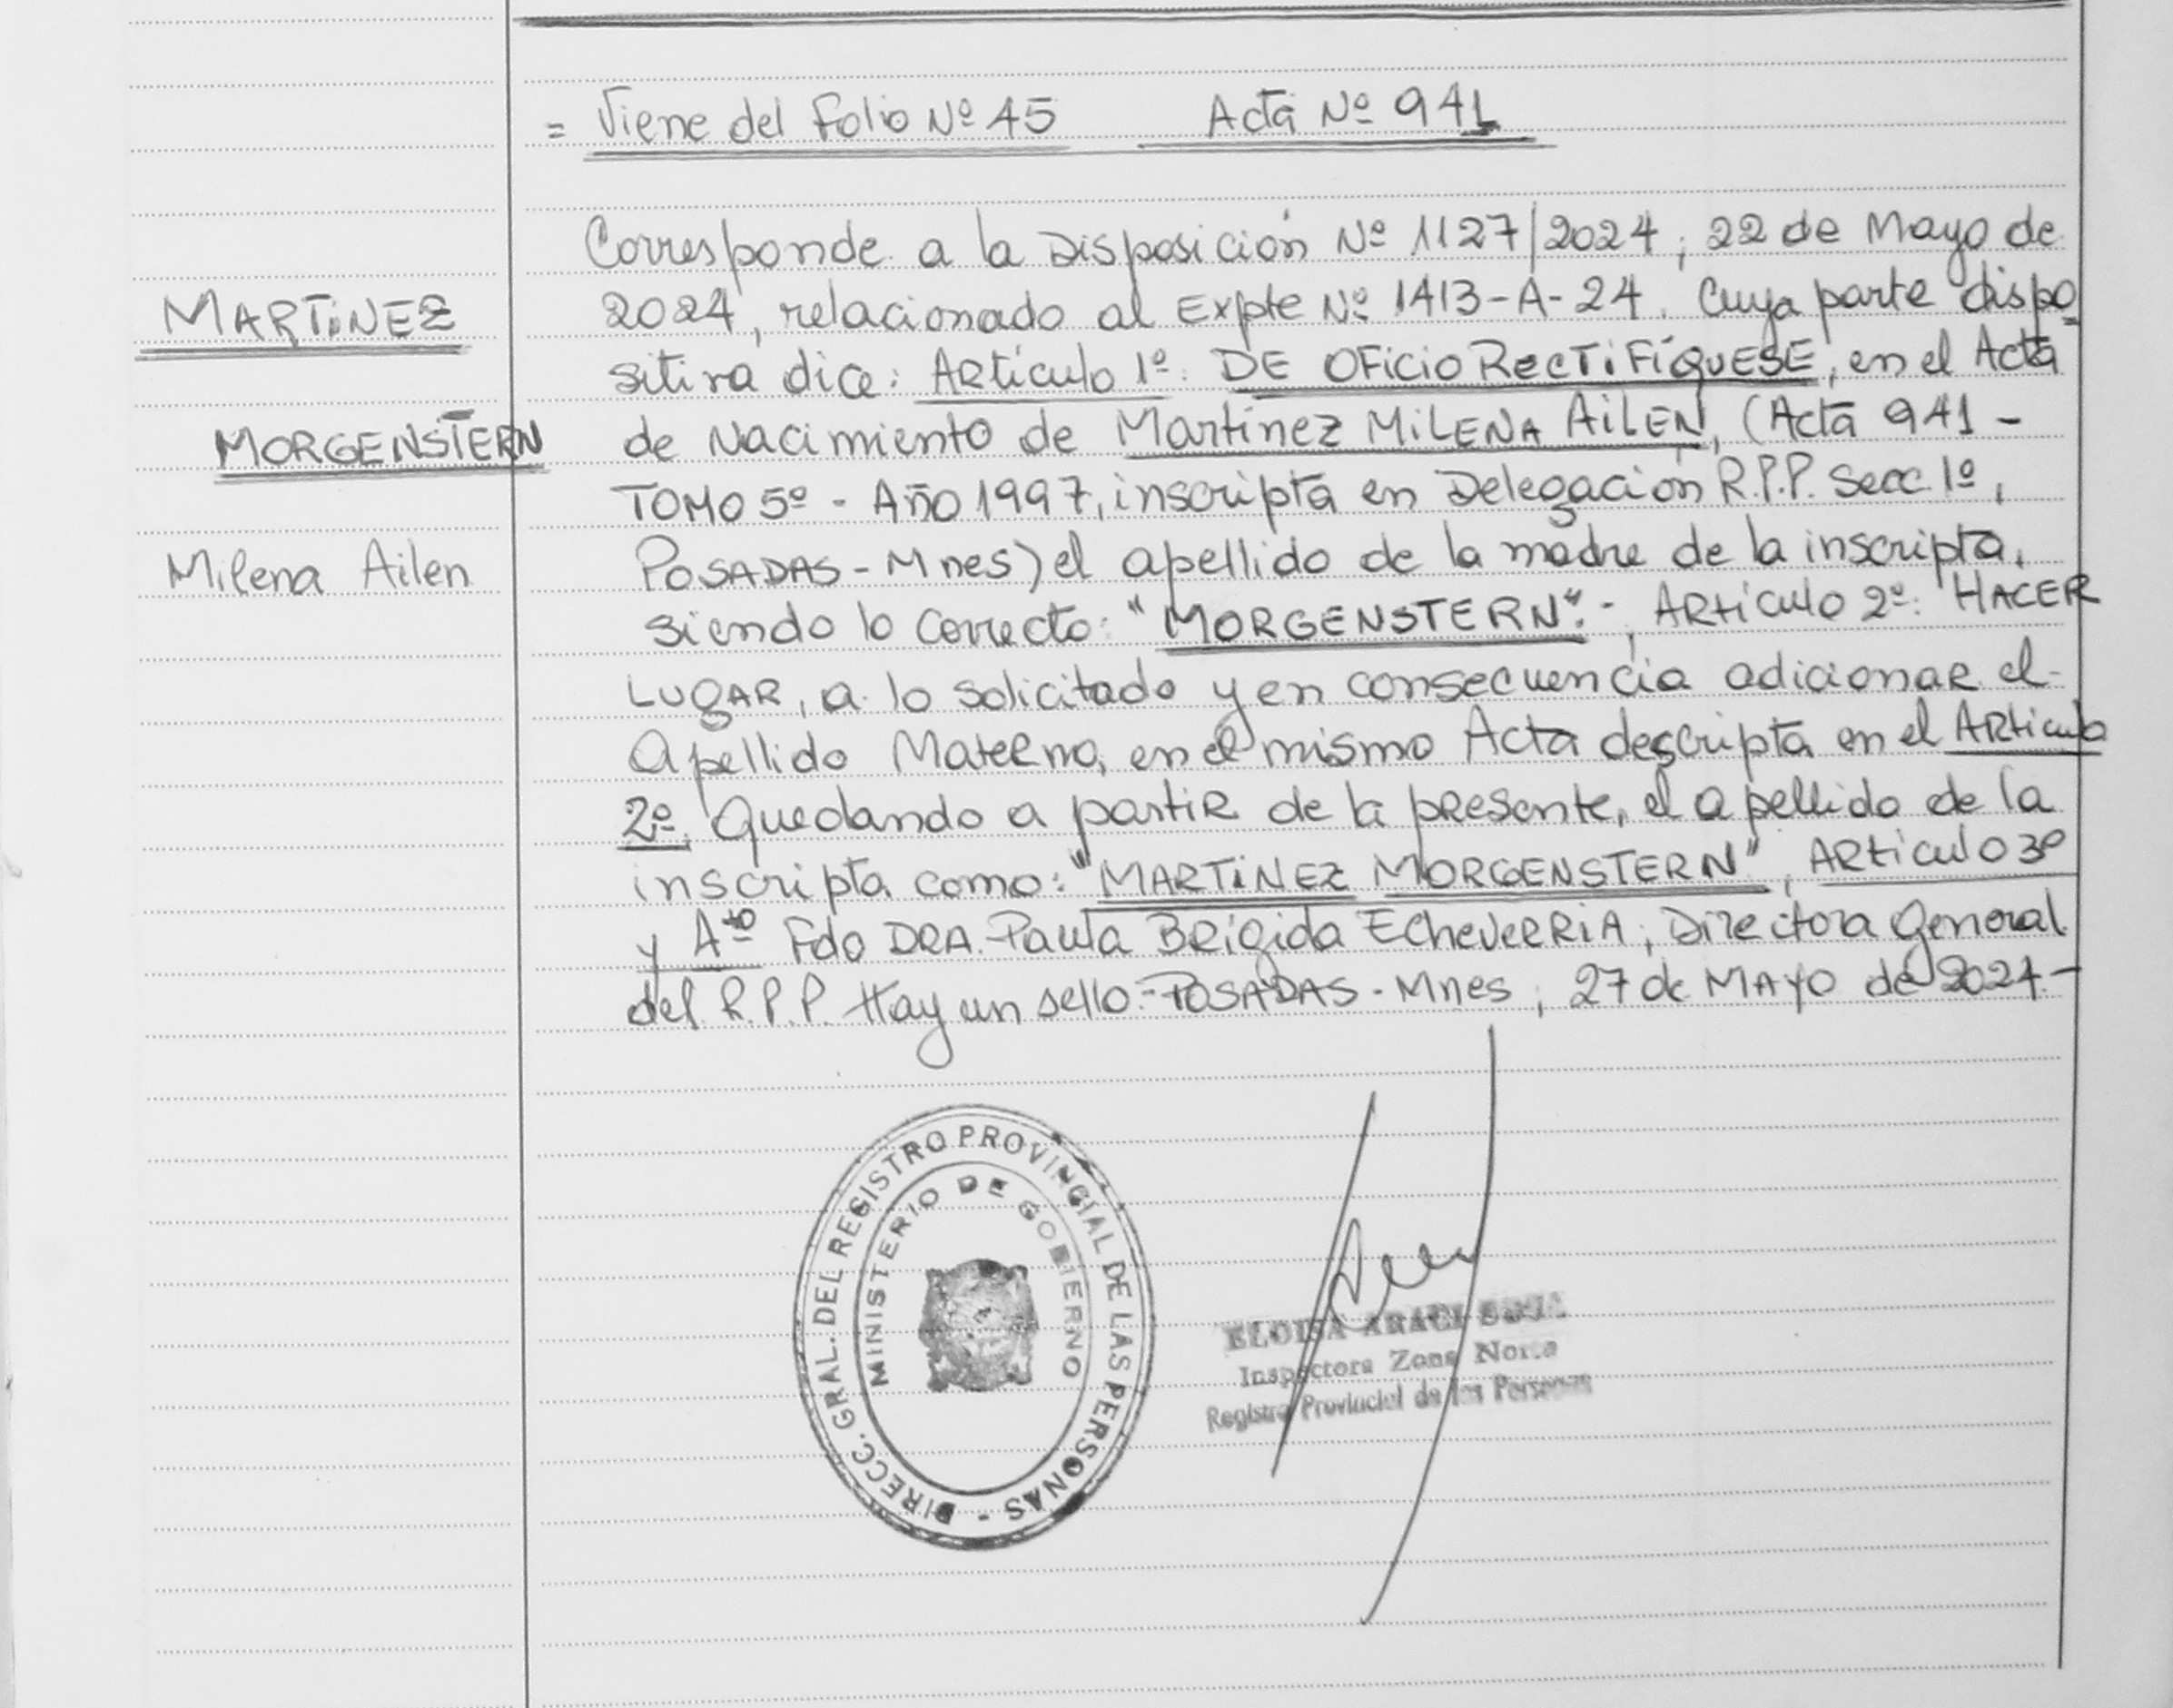 = Viene del Folio Nº 45 Acta Nº 941
MARTINEZ
MORGENSTERN
Milena Ailen
Corresponde a la Disposición Nº 1127/2024, 22 de Mayo de
2024, relacionado al Expte Nº 1413-A-24. Cuya parte dispo
sitiva dice: Artículo 1º: DE OFICIO RECTIFÍQUESE, en el Acta
de Nacimiento de Martínez MILENA AILEN, (Acta 941 -
TOMO 5º - Año 1997, inscripta en Delegación R.P.P. Secc 1º,
POSADAS - Mnes) el apellido de la madre de la inscripta,
siendo lo correcto: "MORGENSTERN".-, Artículo 2º: HACER
LUGAR, a lo solicitado y en consecuencia adicionar el
Apellido Materno, en el mismo Acta descripta en el Articulo
2º. Quedando a partir de la presente, el apellido de la
inscripta como: "MARTINEZ MORGENSTERN", Articulo 3º
y 4to Fdo DRA. Paula Brígida EcheverRIA, Directora General
del R.P.P. Hay un sello.- POSADAS - Mnes, 27 de MAYO de 2024.-
DIRECC. GRAL. DEL REGISTRO PROVINCIAL DE LAS PERSONAS -
MINISTERIO DE GOBIERNO
ELOISA
Inspectora Zona Norte
Registro Provincial de las Personas